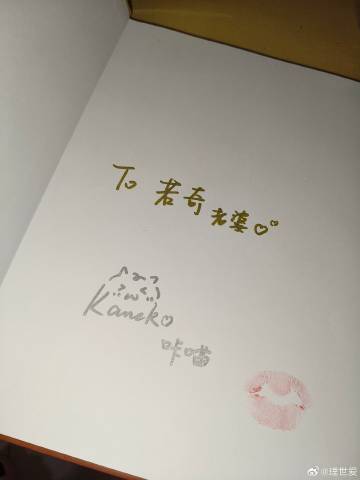 To 若奇老婆♡♡
Kaneko
咔喵
@理世爱